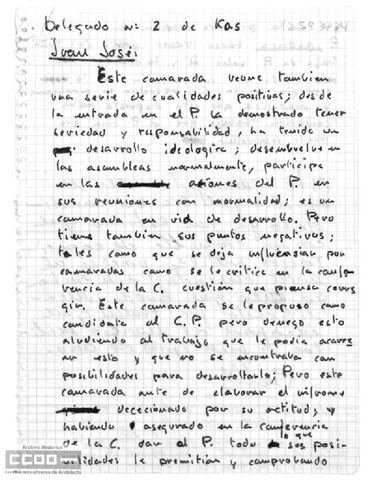 Delegado nº 2 de Kas
Juan José:
Este camarada reune tambien
una serie de cualidades positivas; desde
la entrada en el P. ha demostrado tener
seriedad y responsabilidad, ha tenido un
desarrollo ideologico; desenbuelve en
las asambleas normalmente, participa
en las aciones del P. en
sus reuniones con normalidad; es un
camarada en via de desarrollo. Pero
tiene tambien sus puntos negativos;
tales como que se deja influenciar por
camaradas como se le critica en la confe
rencia de la C. cuestión que piensa corre
gir. Este camarada se le propuso como
candidato al C.P. pero denego esto
aludiendo al trabajo que le podia acarrear
esto y que no se encontraba con
posibilidades para desarrollarlo; Pero este
camarada ante de elaborar el informe
dececionado por su actitud, y
habiendo asegurado en la conferencia
de la C. dar al P. todo lo que sus posi-
vilidades le premitian y comprobando
Archivo Histórico
CCOO
comisiones obreras de Andalucía